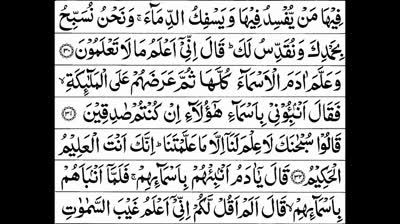 فِيۡهَا مَنۡ يُّفۡسِدُ فِيۡهَا وَيَسۡفِكُ الدِّمَآءَۚ وَنَحۡنُ نُسَبِّحُ
بِحَمۡدِكَ وَنُقَدِّسُ لَكَؕ قَالَ اِنِّىۡٓ اَعۡلَمُ مَا لَا تَعۡلَمُوۡنَ ﴿۳۰﴾
وَعَلَّمَ اٰدَمَ الۡاَسۡمَآءَ كُلَّهَا ثُمَّ عَرَضَهُمۡ عَلَى الۡمَلٰٓٮِٕكَةِۙ
فَقَالَ اَنۡۢبِـُٔوۡنِىۡ بِاَسۡمَآءِ هٰٓؤُلَآءِ اِنۡ كُنۡتُمۡ صٰدِقِيۡنَ ﴿۳۱﴾
قَالُوۡا سُبۡحٰنَكَ لَا عِلۡمَ لَنَآ اِلَّا مَا عَلَّمۡتَنَاؕ اِنَّكَ اَنۡتَ الۡعَلِيۡمُ
الۡحَكِيۡمُ ﴿۳۲﴾ قَالَ يٰٓاٰدَمُ اَنۡۢبِئۡهُمۡ بِاَسۡمَآٮِٕهِمۡۚ فَلَمَّآ اَنۡۢبَاَهُمۡ
بِاَسۡمَآٮِٕهِمۡۙ قَالَ اَلَمۡ اَقُلۡ لَّكُمۡ اِنِّىۡٓ اَعۡلَمُ غَيۡبَ السَّمٰوٰتِ